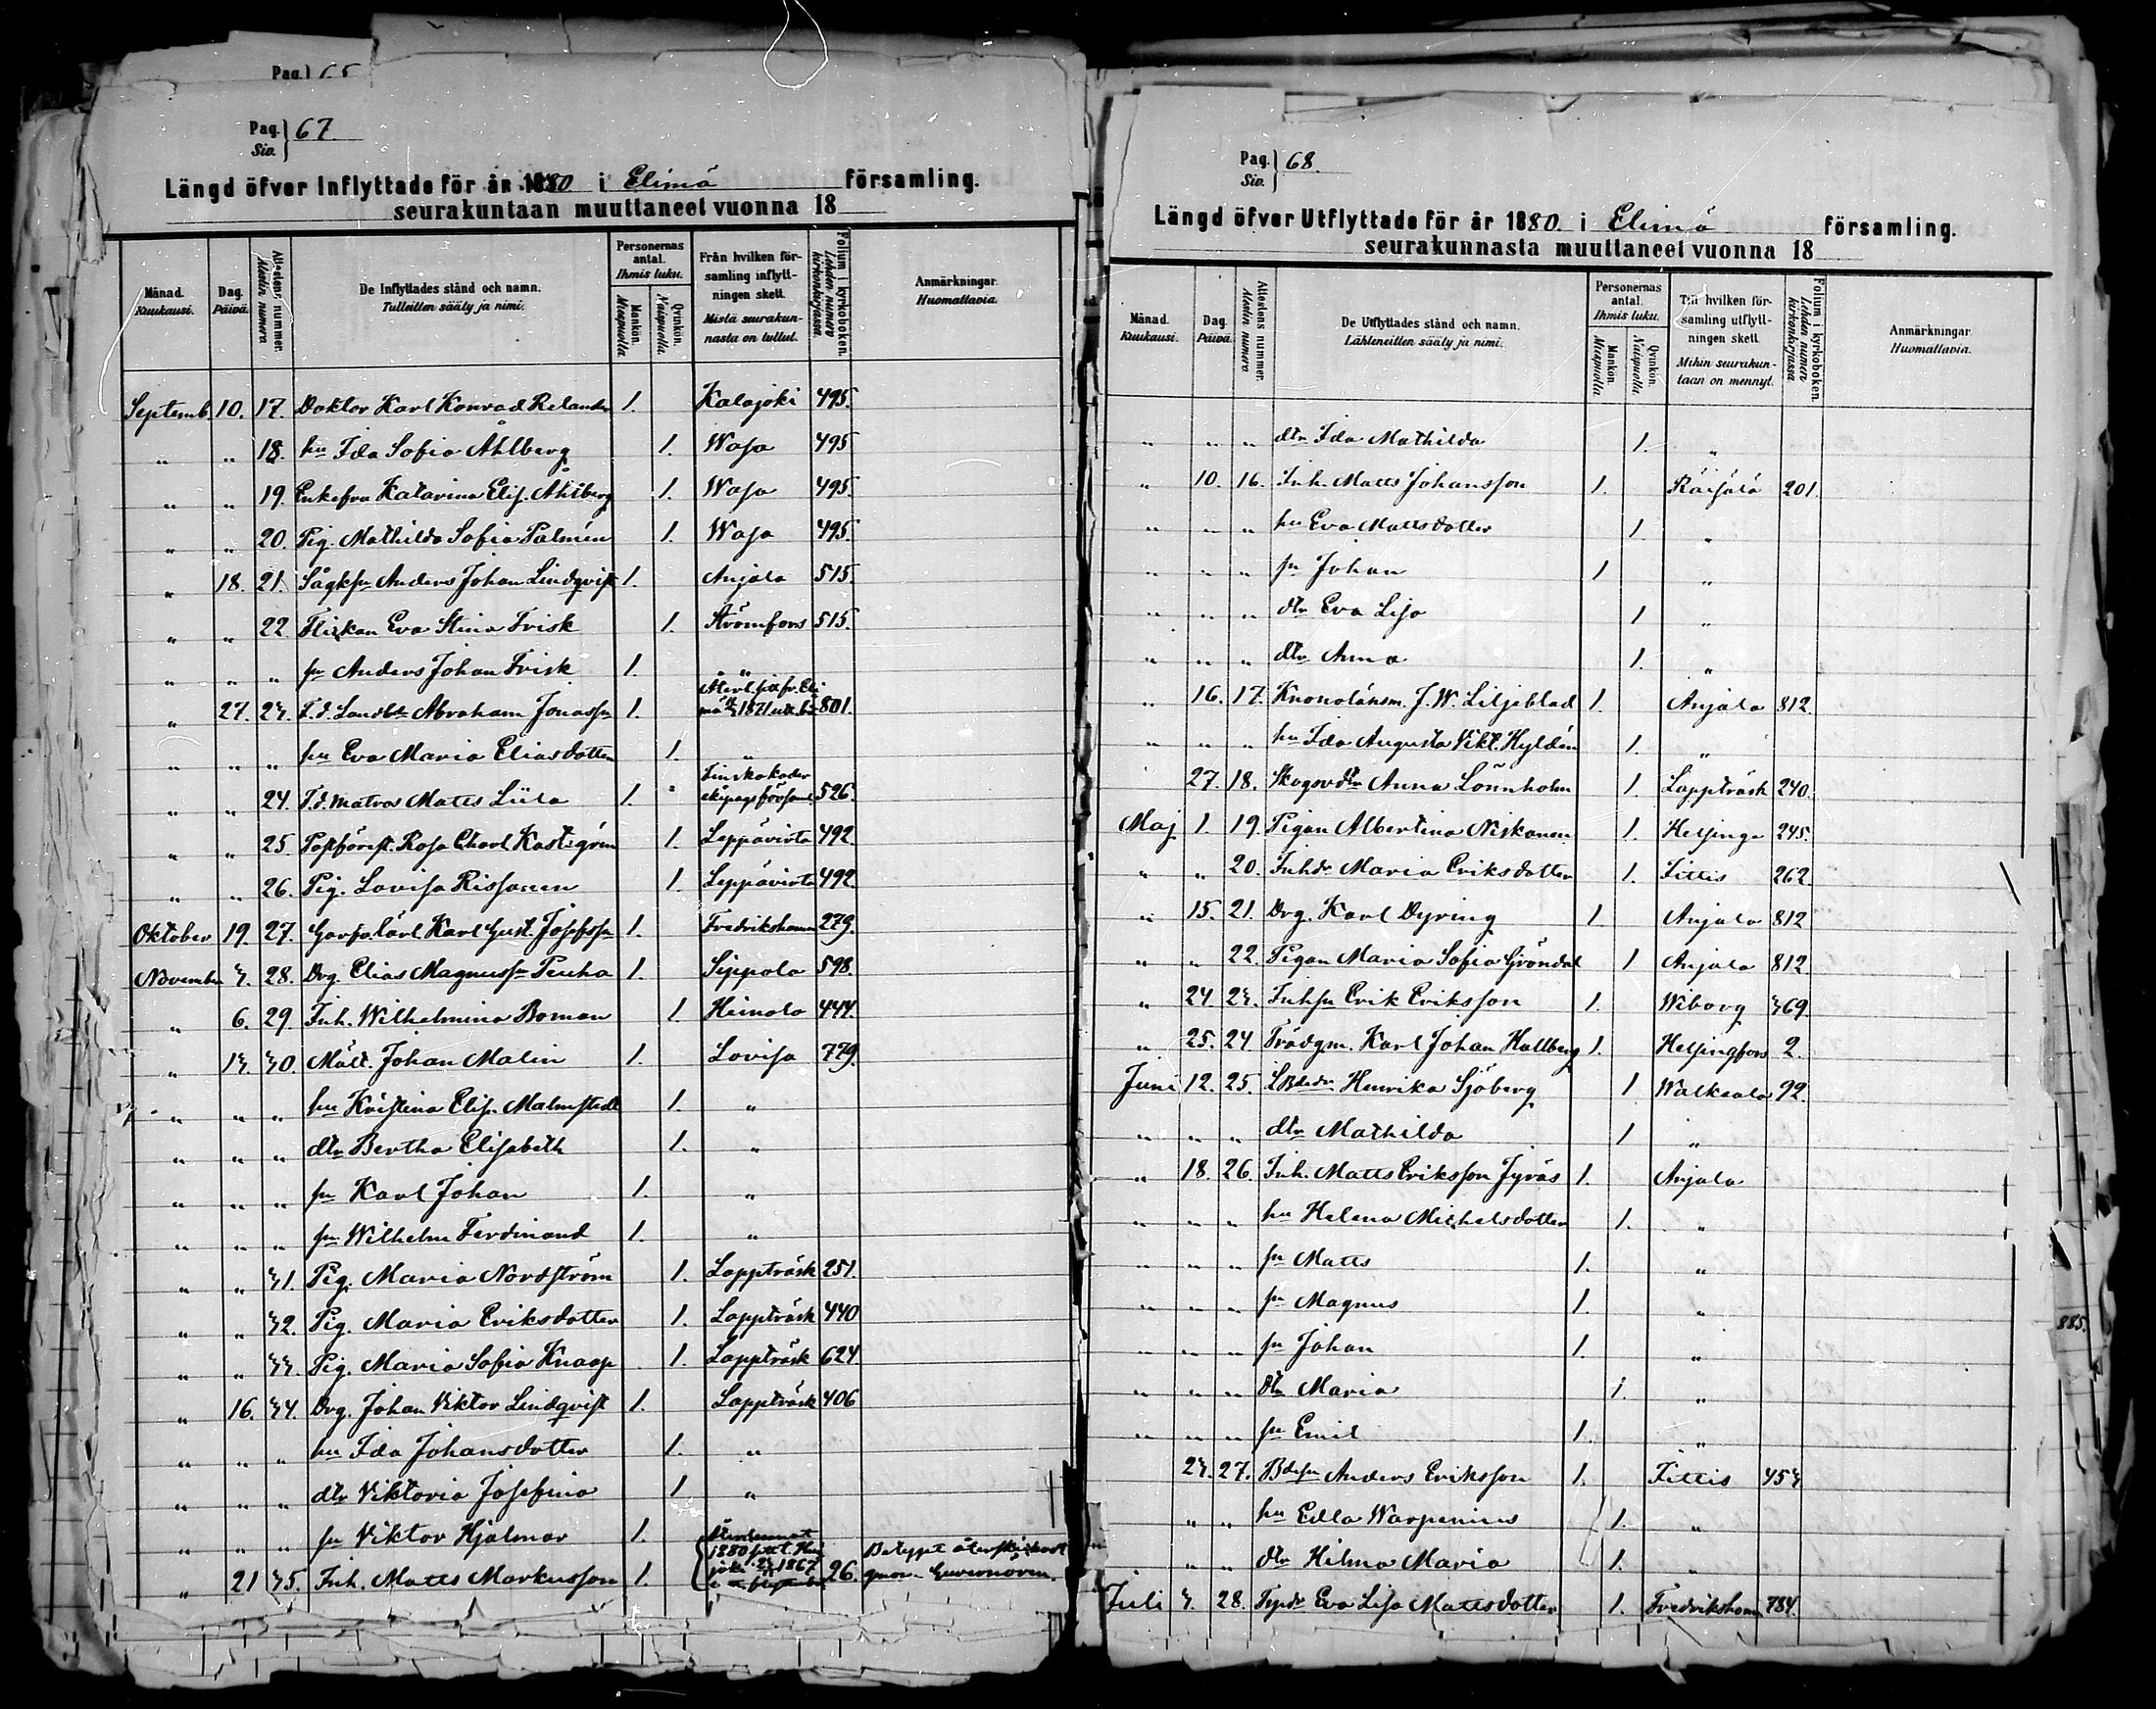 Pag. 65
Pag. Siv. } 67.
Längd öfver Inflyttade för år 1880 i Elimä församling.
seurakuntaan muuttaneet vuonna 18
Månad. Kuukausi. Dag. Päivä. Attestens nummer. Atestin numera De Inflyttades stånd och namn. Tulleitten sääty ja nimi. Personernas antal. Ihmis luku. Mankön. Miespuolia Qvinkön. Naispuolia Från hvilken församling inflyttningen skett. Mistä seurakunnasta on tullut. Folium i kyrkoboken. Lehden numero kirkonkirjassa Anmärkningar. Huomattavia.
Septemb. 10. 17. Doktor Karl Konrad Relander 1. Kalajoki 495.
" " 18. hu Ida Sofia Åhlberg 1. Wasa 495
" " 19. Enkefru Katarina Elis. Åhlberg 1. Wasa 495.
" " 20. Pig. Mathilda Sofia Palmén 1. Wasa 495.
" 18. 21. Sågksn Anders Johan Lindqvist 1. Anjala 515.
" " 22. Flickan Eva Stina Frisk 1. Strömfors 515.
" " " sn Anders Johan Frisk 1. "
" 27. 23. F.d. Landb. Abraham Jonassn 1. 801.
" " " hu Eva Maria Eliasdotter 1. "
" " 24. F.d. matros Matts Liila 1. Finska kader ekipagsförsaml. 526.
" " 25. Postförest. Rosa Charl. Kastegrén 1. Leppävirta 492.
" " 26. Pig. Lovisa Rissanen 1. Leppävirta 492.
Oktober 19. 27. Garfvalärl. Karl Gust. Josefssn 1. Fredrikshamn 279.
November 3. 28. Drg. Elias Magnussn Peuha 1. Sippola 598.
" 6. 29. Inh. Wilhelmina Boman 1. Heinola 444.
" 13. 30. Målt. Johan Malin 1. Lovisa 779.
" " " hu Kristina Elis. Malmstedt 1. "
" " " dtr Bertha Elisabeth 1. "
" " " sn Karl Johan 1. "
" " " sn Wilhelm Ferdinand 1. "
" " 31. Pig. Maria Nordström 1. Lappträsk 251.
" " 32. Pig. Maria Eriksdotter 1. Lappträsk 440
" " 33. Pig. Maria Sofia Knaap 1. Lappträsk 624.
" 16. 34. Drg. Johan Viktor Lindqvist 1. Lappträsk 406
" " " hu Ida Johansdotter 1. "
" " " dtr Viktoria Josefina 1 "
" " " sn Viktor Hjalmar 1.
" 21 35. Inh. Matts Markusson 1. 26. Betyget Guvernören.
Pag. Siv. } 68.
Längd öfver Utflyttade för år 1880. i Elimä församling.
seurakunnasta muuttaneet vuonna 18
Månad. Kuukausi. Dag. Päivä. Attestens nummer. Atestin numera De Utflyttades stånd och namn. Lähteneitten sääty ja nimi. Personernas antal. Ihmis luku. Mankön. Miespuolia Qvinkön. Naispuolia Till hvilken församling utflyttningen skett. Mihin seurakuntaan on mennyt. Folium i kyrkoboken. Lehden numero kirkonkirjassa Anmärkningar. Huomattavia.
" " " dtr Ida Mathilda 1. "
" 10. 16. Inh. Matts Johansson 1. Räisälä 201.
" " " hu Eva Mattsdotter 1. "
" " " sn Johan 1 "
" " " dtr Eva Lisa 1 "
" " " dtr Anna 1. "
" 16. 17. Kronolänsm. J. W. Liljeblad 1. Anjala 812.
" " " hu Ida Augusta Vikt. Hyldén 1. "
" 27. 18. Skogsvdtr Anna Lönnholm 1. Lappträsk 240.
Maj 1. 19. Pigan Albertina Niskanen 1. Helsinge 245.
" " 20. Inhdr Maria Eriksdotter 1. Iittis 262.
" 15. 21. Drg. Karl Dyring 1. Anjala 812
" " 22. Pigan Maria Sofia Gröndal 1 Anjala 812.
" 24 23. Inhsn Erik Eriksson 1. Wiborg 369.
" 25. 24. Trädgm. Karl Johan Hallberg 1. Helsingfors 2.
Juni 12. 25. Henrika Sjöberg 1 Walkeala 92.
" " " dtr Mathilda 1 "
" 18. 26. Inh. Matts Eriksson Jyräs 1. Anjala
" " " hu Helena Michelsdotter 1. "
" " " sn Matts 1. "
" " " sn Magnus 1. "
" " " sn Johan 1. "
" " " dtr Maria 1. "
" " " sn Emil 1. "
23. 27. Bdesn Anders Eriksson 1. Iittis 453
" " hu Edla Warpenius 1. "
" " dtr Hilma Maria 1. "
Juli 3. 28. Eva Lisa Mattsdotter 1. Fredrikshamn 784.
885.